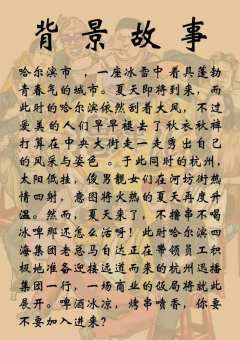 背景故事
哈尔滨市 ，一座冰雪中着具蓬勃
青春气的城市。夏天即将到来，而
此时的哈尔滨依然刮着大风，不过
爱美的人们早早褪去了秋衣秋裤
打算在中央大街走一走秀出自己
的风采与姿色 。于此同时的杭州，
太阳低挂，俊男靓女们在河坊街热
情四射，意图将火热的夏天再度升
温。然而，夏天来了，不撸串不喝
冰啤那还怎么活呀！此时哈尔滨四
海集团老总马自达正在带领员工积
极地准备迎接远道而来的杭州迅播
集团一行，一场商业的饭局将就此
展开。啤酒冰凉，烤串喷香，你要
不要加入进来？